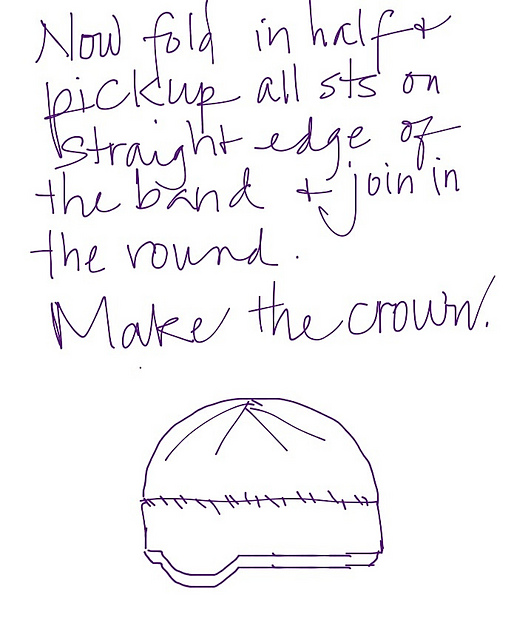 Now fold in half +
pickup all sts on
straight edge of
the band + join in
the round.
Make the crown.